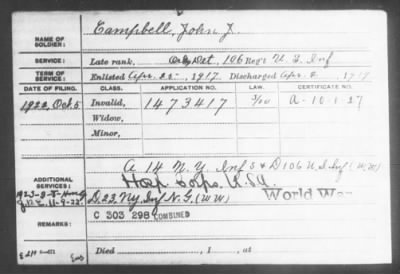 NAME OF SOLDIER: Campbell, John J.
SERVICE: Late rank, Det, 106 Reg't U.S. Inf
TERM OF SERVICE: Enlisted Apr. 25, 1917. Discharged Apr. 2, 1919
DATE OF FILING. CLASS. APPLICATION NO. LAW. CERTIFICATE NO.
1922, Oct 5 Invalid, 1473417 A-10-1-27
Widow,
Minor,
A 14 N.Y. Inf & D 106 U.S. Inf (WW)
ADDITIONAL SERVICES: Hosp Corps U.S.A.
D. 23 NY Inf N.G. (WW) World War
C 303 298 COMBINED
REMARKS:
Died , 1 , at